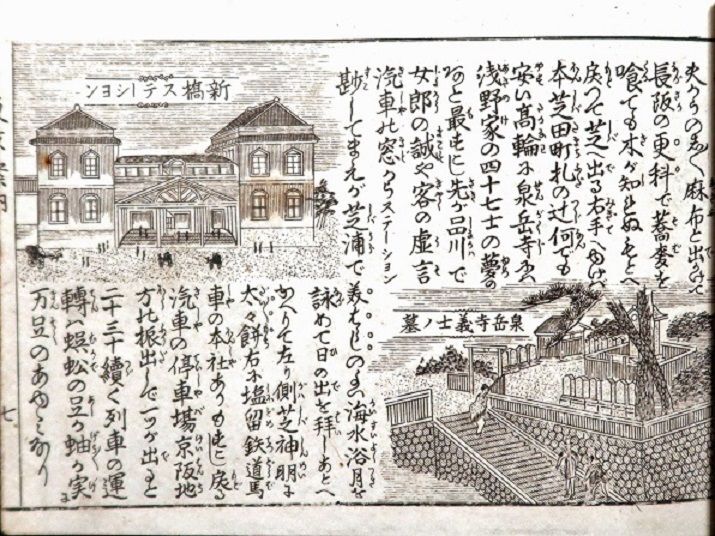 麻布と出かけて
長阪の更科で蕎麦を
喰ても木が知
戻つて芝へ出る右手へ
本芝田町札の辻何でも
安い高輪に泉岳寺
浅野家の四十七士の夢の
あと最もに先が品川で
女郎の誠や客の虚言
汽車の窓からステーション
してまえが芝浦で
海水浴月を
詠めて日の出を拝しあとへ
かへりて左り側芝神明に
太々餅右に塩留鉄道馬
車の本社ありもとに戻る
汽車の停車場京阪地
方に振出して一ツが出ると
二三十続く列車の運
轉ハ蜈蚣の足か蚰か実に
万足のあゆみなり
新橋ステーシヨン
泉岳寺義士ノ墓
七